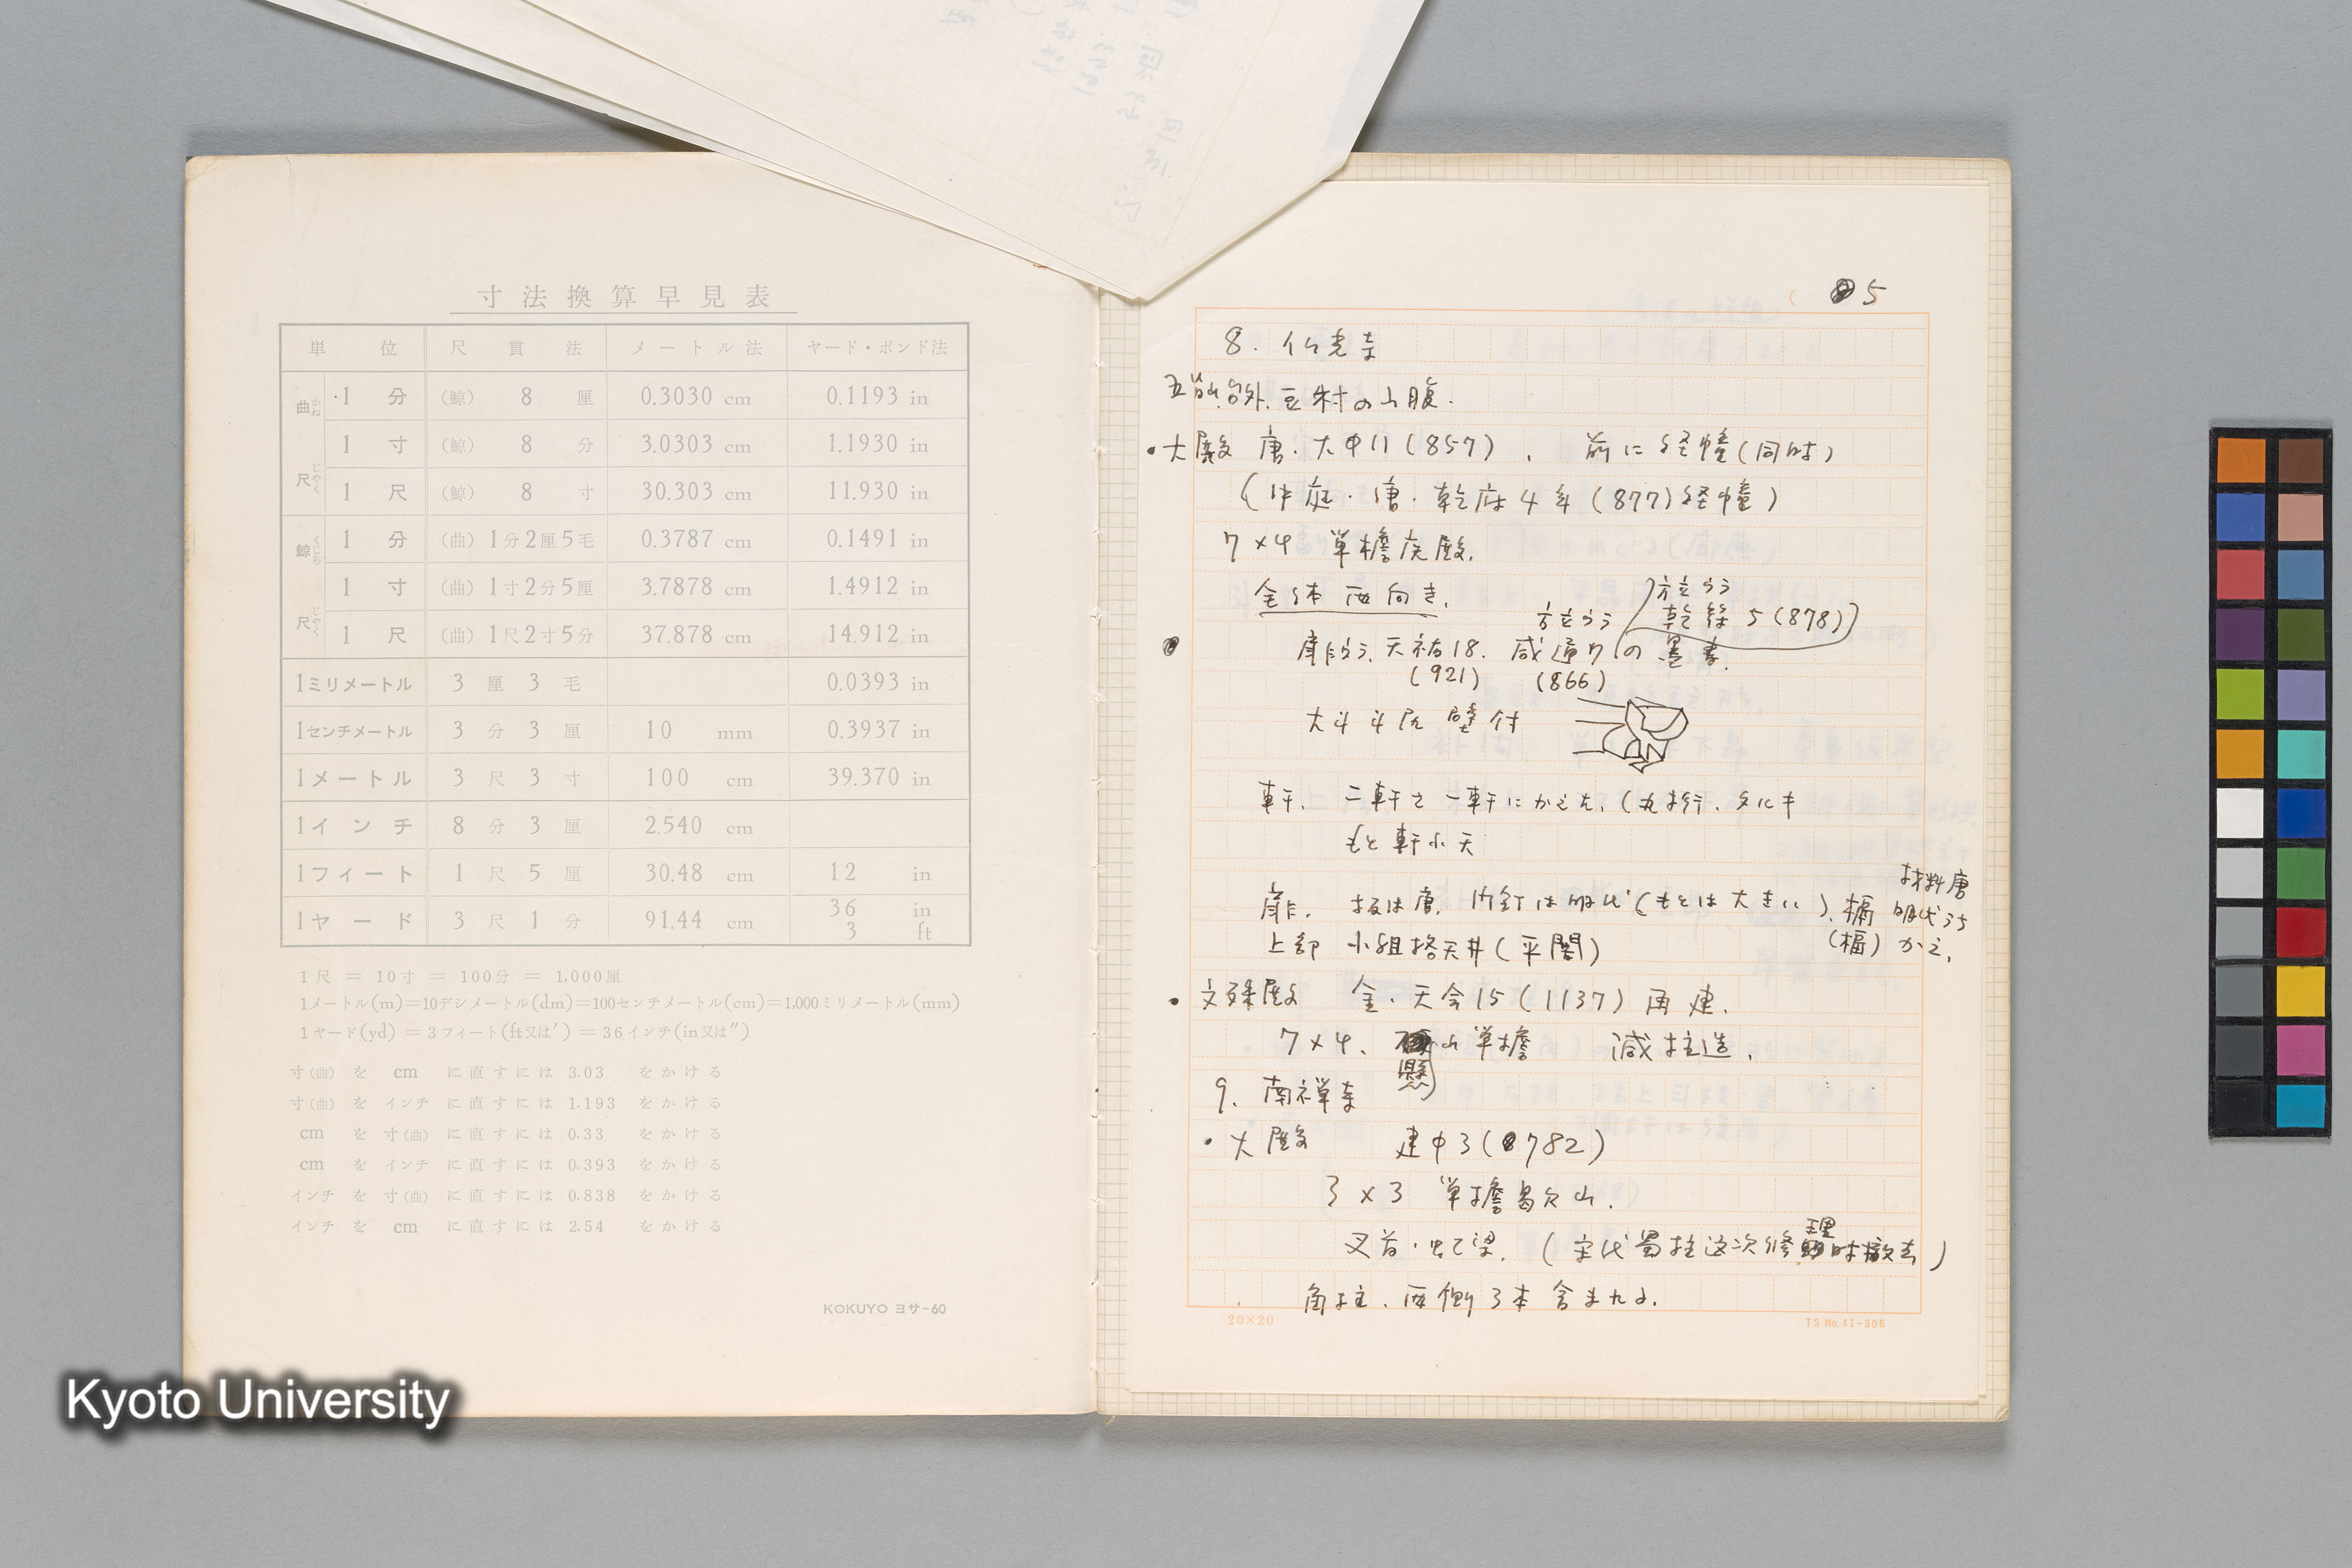 寸法換算早見表
単位 尺貫法 メートル法 ヤード・ポンド法
曲尺 かねじゃく
1分 (鯨) 8厘 0.3030 cm 0.1193 in
1寸 (鯨) 8分 3.0303 cm 1.1930 in
1尺 (鯨) 8寸 30.303 cm 11.930 in
鯨尺 くじらじゃく
1分 (曲) 1分2厘5毛 0.3787 cm 0.1491 in
1寸 (曲) 1寸2分5厘 3.7878 cm 1.4912 in
1尺 (曲) 1尺2寸5分 37.878 cm 14.912 in
1ミリメートル 3厘3毛 0.0393 in
1センチメートル 3分3厘 10 mm 0.3937 in
1メートル 3尺3寸 100 cm 39.370 in
1インチ 8分3厘 2.540 cm
1フィート 1尺5厘 30.48 cm 12 in
1ヤード 3尺1分 91.44 cm 36 in 3 ft
1尺 = 10寸 = 100分 = 1,000厘
1メートル(m)=10デシメートル(dm)=100センチメートル(cm)=1,000ミリメートル(mm)
1ヤード(yd) = 3フィート(ft又は′) = 36インチ(in又は″)
寸(曲) を cm に直すには 3.03 をかける
寸(曲) を インチ に直すには 1.193 をかける
cm を 寸(曲) に直すには 0.33 をかける
cm を インチ に直すには 0.393 をかける
インチ を 寸(曲) に直すには 0.838 をかける
インチ を cm に直すには 2.54 をかける
KOKUYO ヨサ-60
5
8. 仏光寺
五台山台外.豆村の山腹.
・大殿 唐・大中11(857), 前に経幢(同時)
(中庭・唐・乾符4年(877)経幢)
7×4 単檐庑殿.
全体西向き.
方立うら
乾符5(878)
方立うら
扉板うら、天祐18. 咸通7の墨書.
(921) (866)
大斗斗尻壁付
軒. 二軒を一軒にかえた.(丸桁.タルキ
もと軒小天
材料唐
扉. 板は唐. 門釘は明代(もとは大きい). 槅 明代うち
(楅) かえ.
上部 小組格天井(平闇)
・文殊殿 金・天会15(1137)再建.
7×4、懸山単檐 減柱造.
9. 南禅寺
・大殿 建中3(782)
3×3 単檐曷欠山.
叉首・虹梁.(宋代蜀柱这次修理時撤去)
角柱、西側3本含まれる.
20×20
TS No.41-306
Kyoto University